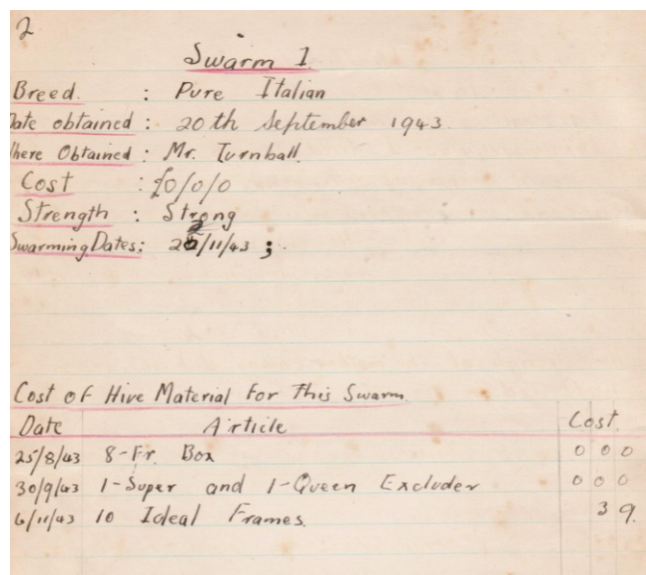 2
Swarm 1
Breed : Pure Italian
Date obtained : 20th September 1943
here Obtained : Mr. Turnball
Cost : £0/0/0
Strength : Strong
Swarming Dates: /11/43 ;
Cost of Hive Material For This Swarm
Date Airticle Cost
25/8/43 8-Fr. Box 0 0 0
30/9/43 1-Super and 1-Queen Excluder 0 0 0
6/11/43 10 Ideal Frames. 3 9.